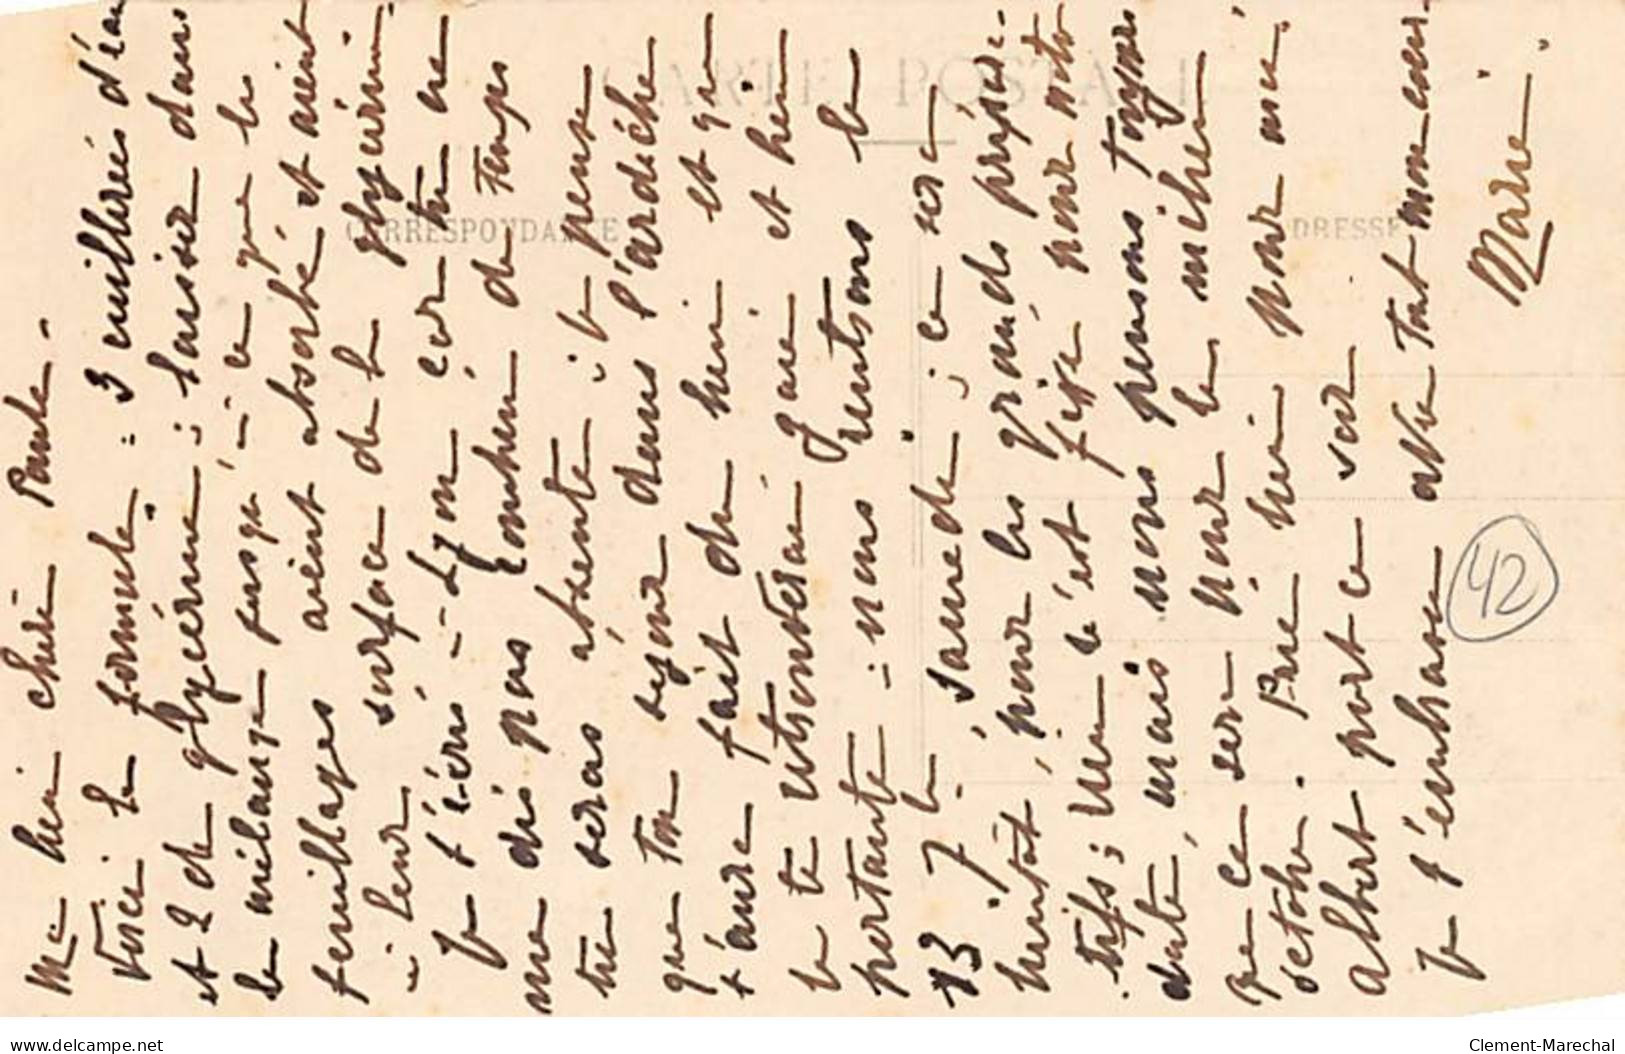 Ma bien chère Paule -
Voici la formule : 3 cuillerées d'eau
et 2 de glycérine ; laisser dans
le mélange jusqu'à ce que les
feuillages aient absorbé et aient
à leur surface de la glycérine.
Je t'écris à Lyon, car tu ne
me dis pas combien de temps
tu seras absente ; je pense
que ton séjour dans l'Ardèche
t'aura fait du bien et qu'
la te retrouverai gaie et bien
portante : nous rentrons le
13 7 samedi ; ce sera
bientôt, pour les grands préparatifs ; rien n'est fixé pour notre
date, mais nous pensons toujours
que ce sera pour le milieu
octobre. Prie bien pour moi.
Albert part ce soir
Je t'embrasse avec tout mon cœur.
Marie.
CARTE POSTALE
CORRESPONDANCE
ADRESSE
42
delcampe.net
Clement-Marechal